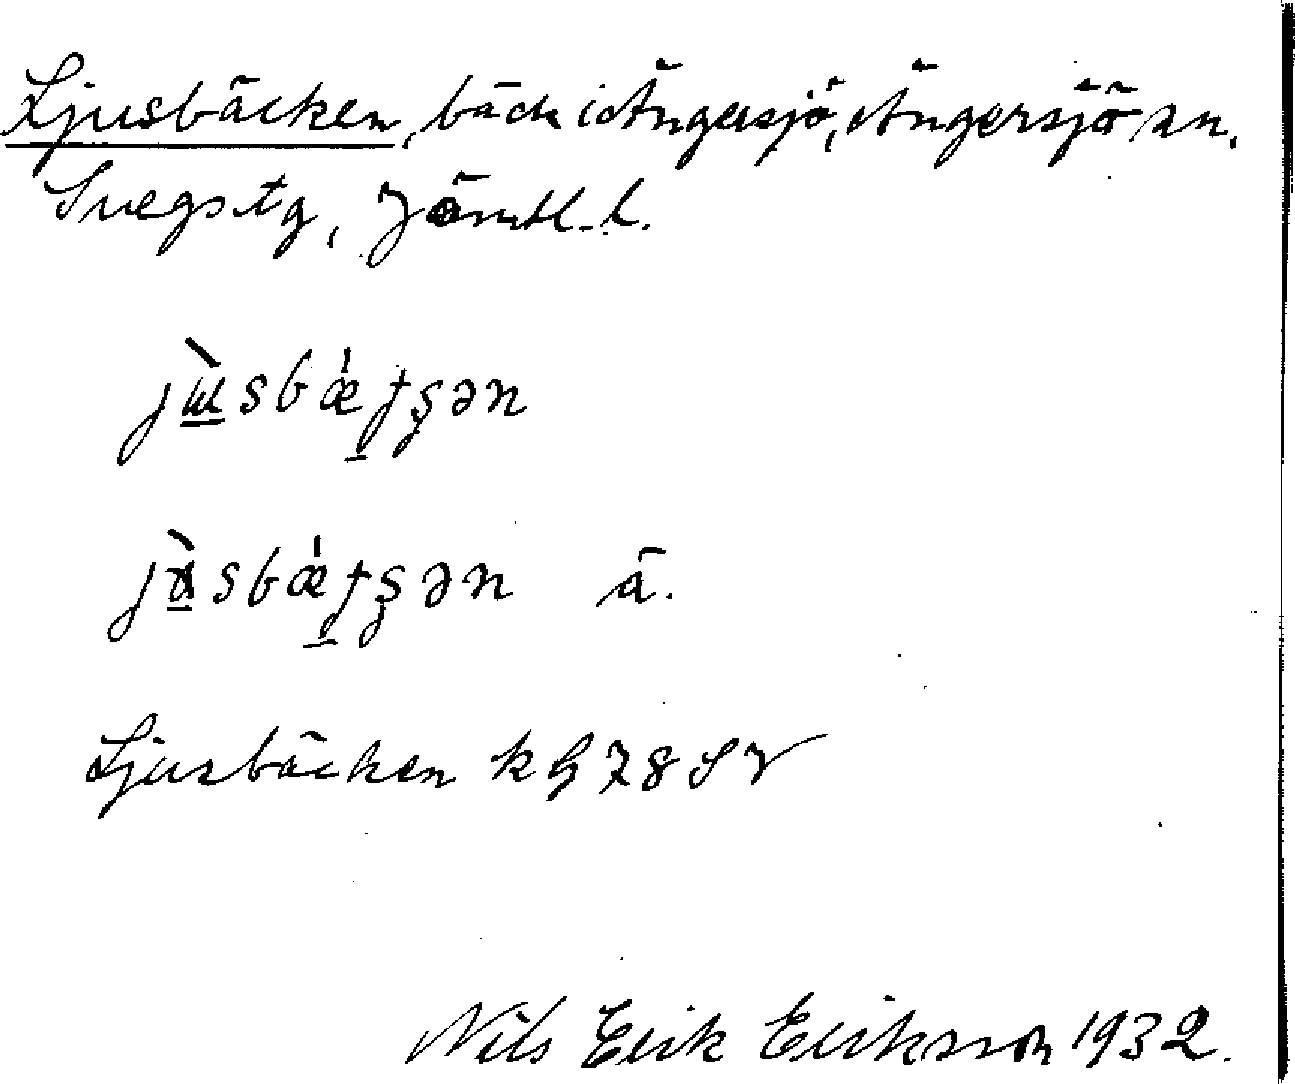 Ljusbäcken, bäck i Ängersjö, Ängersjö sn.
Svegs tg, Jämtl. l.
jùsbǽʃşən
ä.
Ljusbäcken k G 78 SV
Nils Erik Erikson 1932.